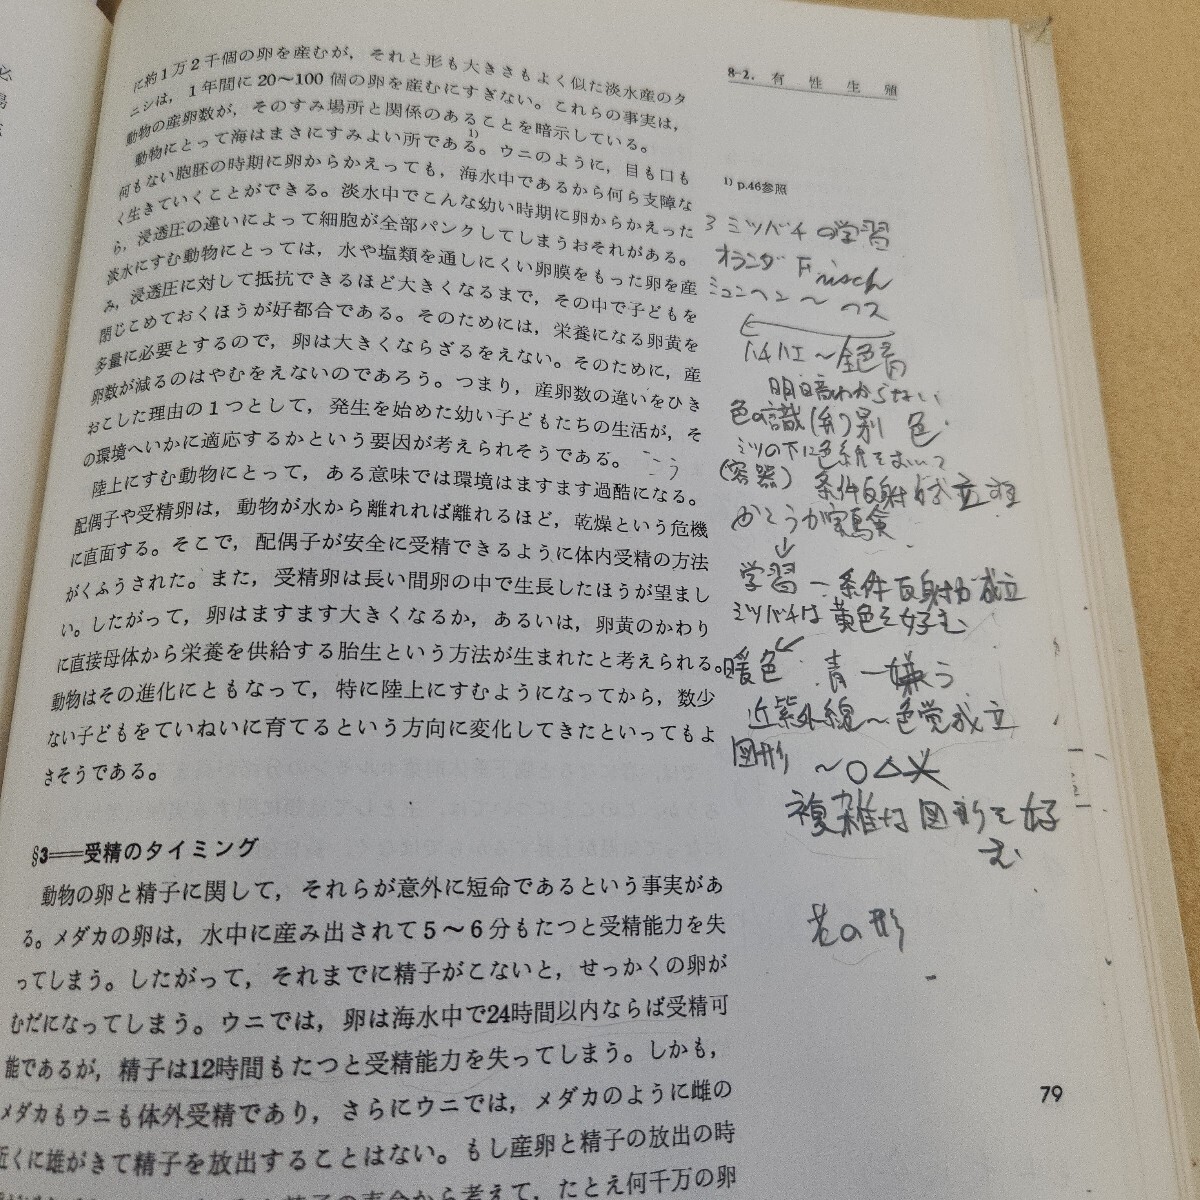 に約1万2千個の卵を産むが，それと形も大きさもよく似た淡水産のタ
ニシは，1年間に20〜100個の卵を産むにすぎない。これらの事実は，
動物の産卵数が，そのすみ場所と関係のあることを暗示している。
動物にとって海はまさにすみよい所である。1) ウニのように，目も口も
何もない胞胚の時期に卵からかえっても，海水中であるから何ら支障な
く生きていくことができる。淡水中でこんな幼い時期に卵からかえった
ら，浸透圧の違いによって細胞が全部パンクしてしまうおそれがある。
淡水にすむ動物にとっては，水や塩類を通しにくい卵膜をもった卵を産
み，浸透圧に対して抵抗できるほど大きくなるまで，その中で子どもを
閉じこめておくほうが好都合である。そのためには，栄養になる卵黄を
多量に必要とするので，卵は大きくならざるをえない。そのために，産
卵数が減るのはやむをえないのであろう。つまり，産卵数の違いをひき
おこした理由の1つとして，発生を始めた幼い子どもたちの生活が，そ
の環境へいかに適応するかという要因が考えられそうである。
陸上にすむ動物にとって，ある意味では環境はますます過酷になる。
配偶子や受精卵は，動物が水から離れれば離れるほど，乾燥という危機
に直面する。そこで，配偶子が安全に受精できるように体内受精の方法
がくふうされた。また，受精卵は長い間卵の中で生長したほうが望まし
い。したがって，卵はますます大きくなるか，あるいは，卵黄のかわり
に直接母体から栄養を供給する胎生という方法が生まれたと考えられる。
動物はその進化にともなって，特に陸上にすむようになってから，数少
ない子どもをていねいに育てるという方向に変化してきたといってもよ
さそうである。
§3＝受精のタイミング
動物の卵と精子に関して，それらが意外に短命であるという事実があ
る。メダカの卵は，水中に産み出されて5〜6分もたつと受精能力を失
ってしまう。したがって，それまでに精子がこないと，せっかくの卵が
むだになってしまう。ウニでは，卵は海水中で24時間以内ならば受精可
能であるが，精子は12時間もたつと受精能力を失ってしまう。しかも，
メダカもウニも体外受精であり，さらにウニでは，メダカのように雌の
近くに雄がきて精子を放出することはない。もし産卵と精子の放出の時
精子の寿命から考えて，たとえ何千万の卵
8-2. 有性生殖
1) p.46参照
ミツバチの学習
オランダ Frisch
ミュンヘン〜
〜全色盲
明暗わからない
色の識(弁)別 色
ミツの下に色紙をおいて
(容器) 条件反射が成立
実験
↓
学習 ー 条件反射が成立
ミツバチは黄色を好む
暖色 青ー嫌う
近紫外線〜色覚成立
図形 〜○△
複雑な図形を好
む
花の形
79